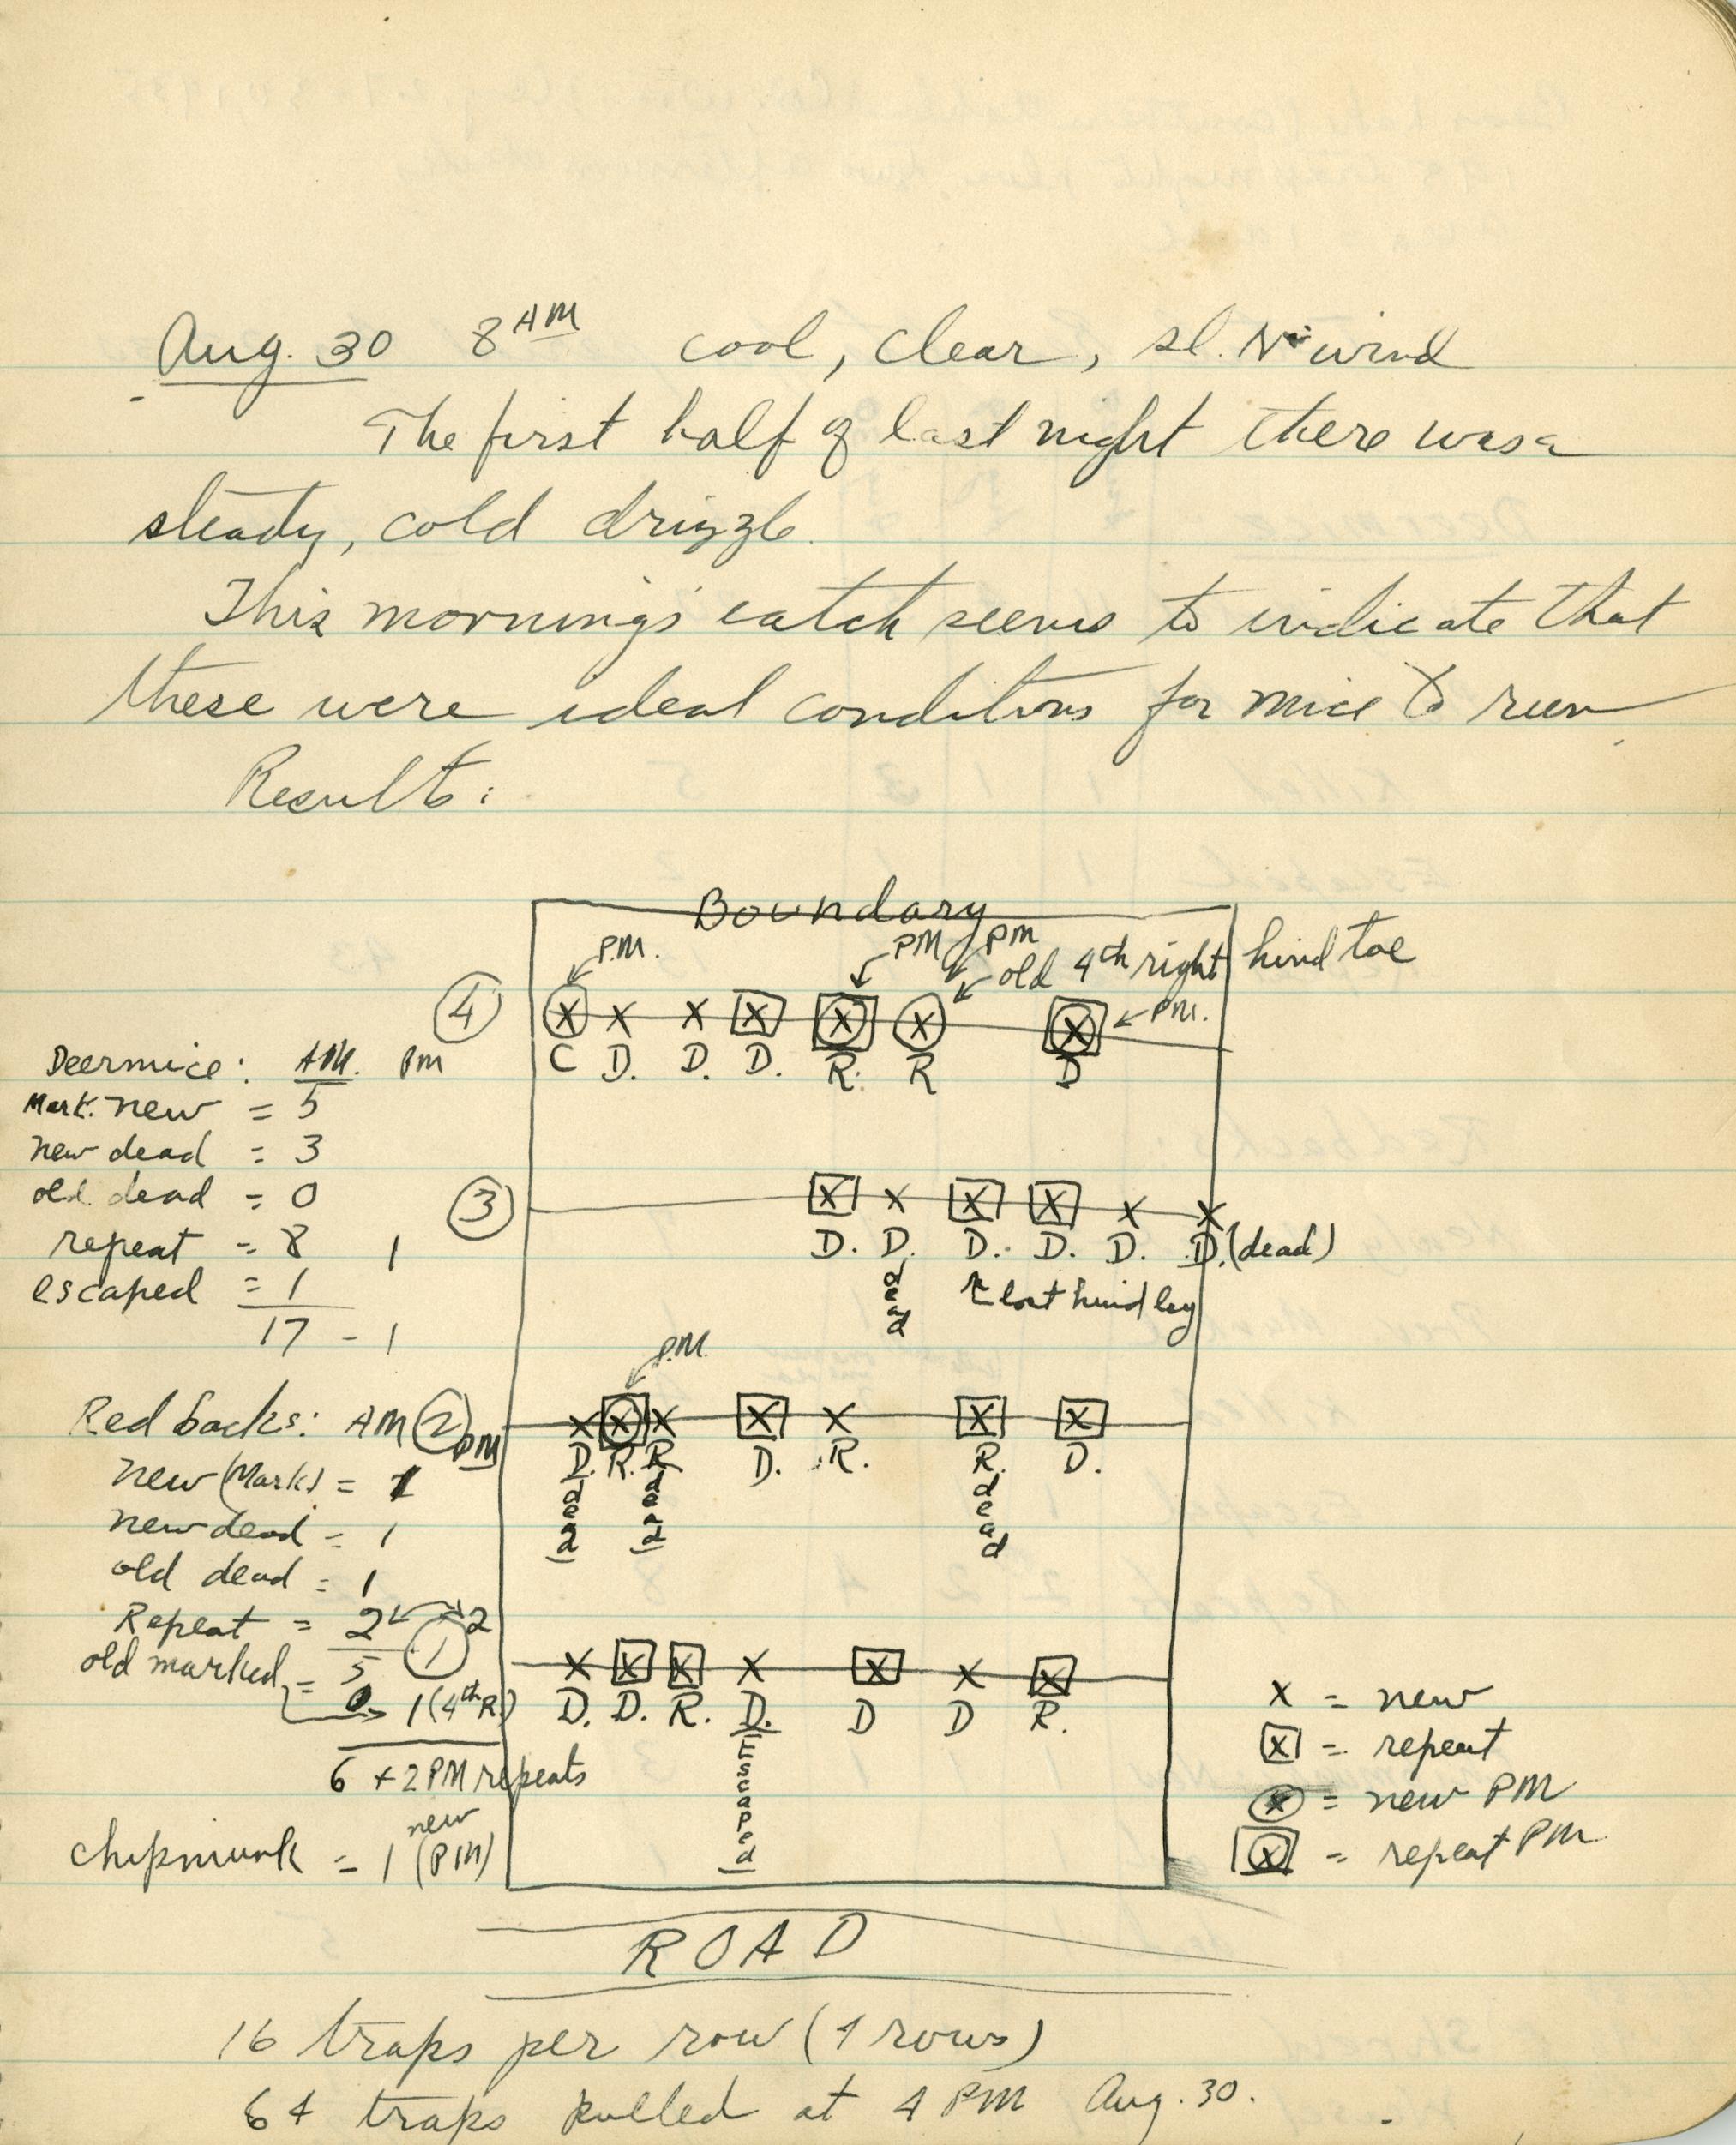 Aug. 30 8 AM cool, clear, sl. N wind
The first half of last night there was a
steady, cold drizzle.
This morning's catch seems to indicate that
these were ideal conditions for mice to run
Results:
Boundary
P.M. PM PM
old 4th right hind toe
④ X X X X X X X ← PM.
C D. D. D. R. R D
Deermice: AM. PM
Mark. new = 5
new dead = 3
old dead = 0
repeat = 8 1
escaped = 1
17 - 1
③ X X X X X X
D. D. D. D. D. D. (dead)
dead lost hind leg
P.M.
Red backs: AM PM
② X X X X X X X
D. R. R D. R. R. D.
dead dead dead
new (Mark) = 1
new dead = 1
old dead = 1
Repeat = 2 2
5
old marked = 0 1 (4th R)
6 + 2 PM repeats
Chipmunk = 1 new (PM)
① X X X X X X X
D. D. R. D. D D R.
Escaped
X = new
X = repeat
X = new PM
X = repeat PM
ROAD
16 traps per row (4 rows)
64 traps pulled at 4 PM Aug. 30.